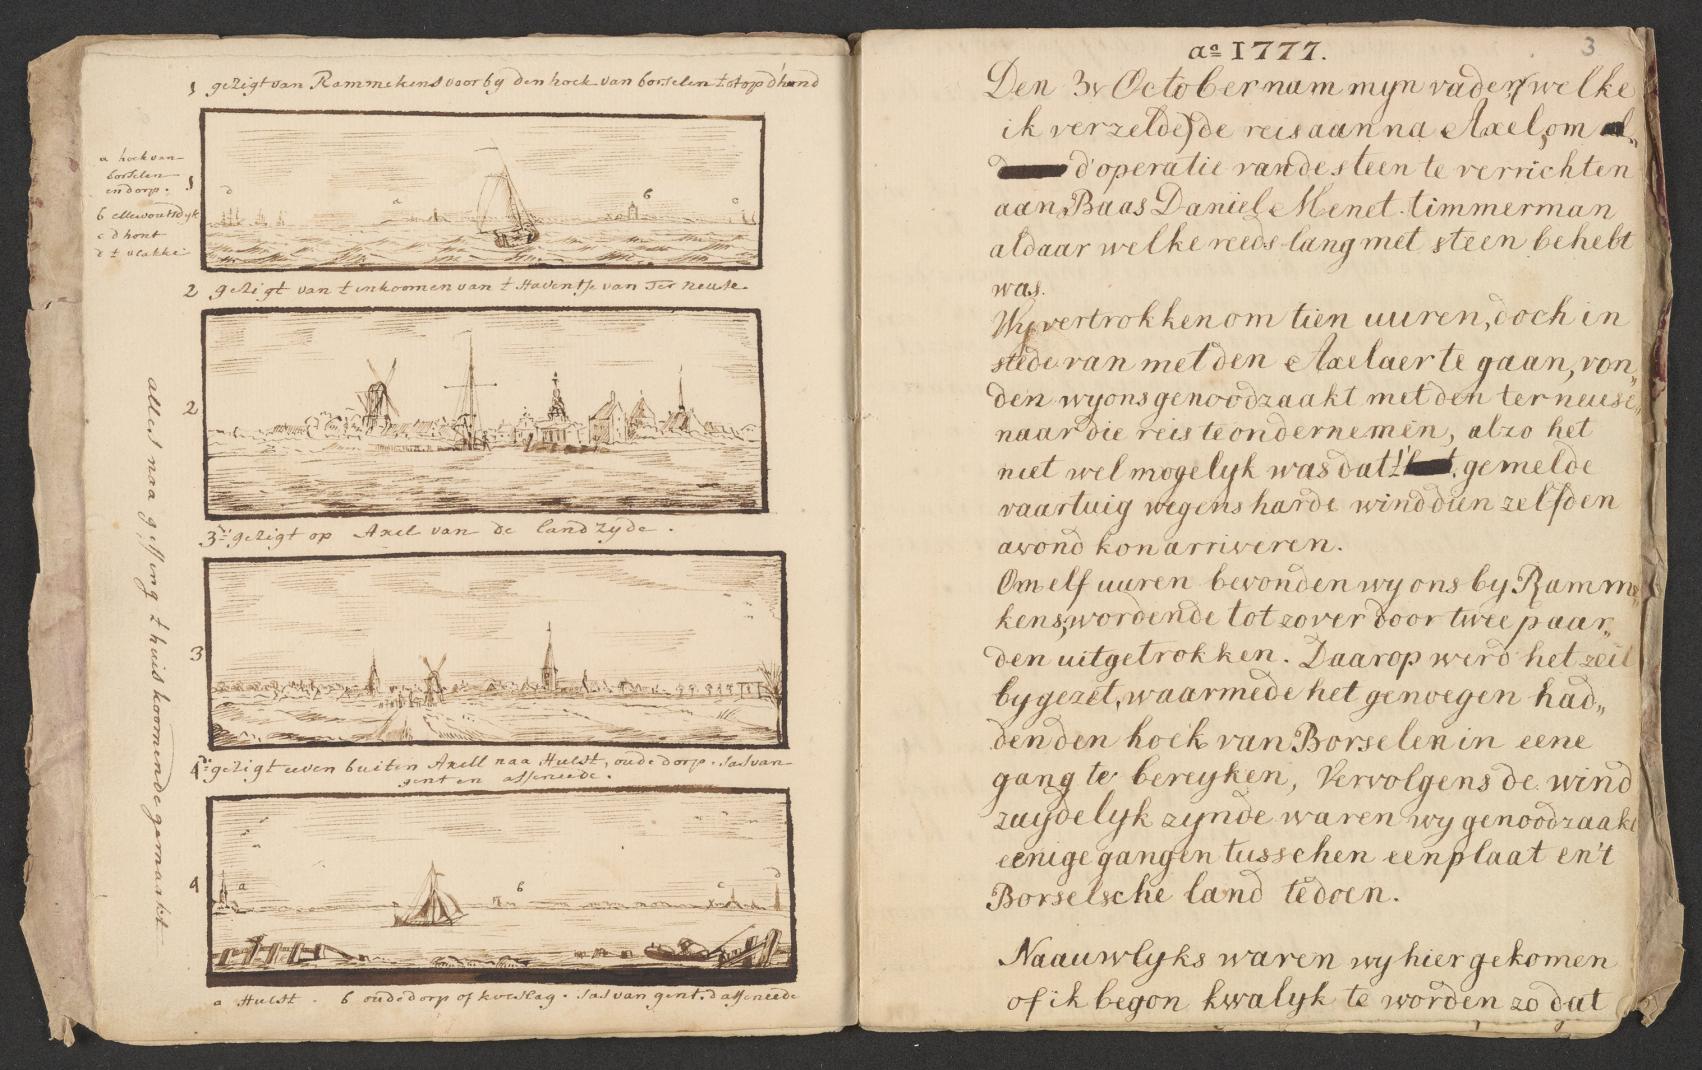 1 gezigt van Rammekens voorby den hoek van borselen tot op d'hond
a hoek van
borselen
en dorp.
b ellewoutsdyk
c d hont
d t vlakke
1
d
a
b
c
2 gezigt van t inkoomen van t Haventje van Ter neuse.
2
3de gezigt op Axel van de landzyde.
3
4de gezigt even buiten Axell naa Hulst, oude dorp. sas van
gent en asseneede.
4
a
b
c
d
a Hulst. b oude dorp of koeslag. sas van gent. d asseneede
alles naa gissing t huis koomende gemaakt
3
ao 1777.
Den 3n October nam myn vader (welke
ik verzelde) de reis aan na Axel, om al„
d'operatie van de steen te verrichten
aan Baas Daniël Menet timmerman
aldaar welke reeds lang met steen behebt
was.
Wy vertrokken om tien uuren, doch in
stede van met den Axelaer te gaan, von„
den wy ons genoodzaakt met den ter neuse„
naar die reis te ondernemen, alzo het
niet wel mogelyk was dat 't gemelde
vaartuig wegens harde wind dien zelfden
avond kon arriveren.
Om elf uuren bevonden wy ons by Ramme„
kens, wordende tot zover door twee paar„
den uitgetrokken. Daarop werd het zeil
by gezet, waarmede het genoegen had„
den den hoek van Borselen in eene
gang te bereyken, Vervolgens de wind
zuydelyk zynde waren wy genoodzaakt
eenige gangen tusschen een plaat en't
Borselsche land te doen.
Naauwlyks waren wy hier gekomen
of ik begon kwalyk te worden zo dat